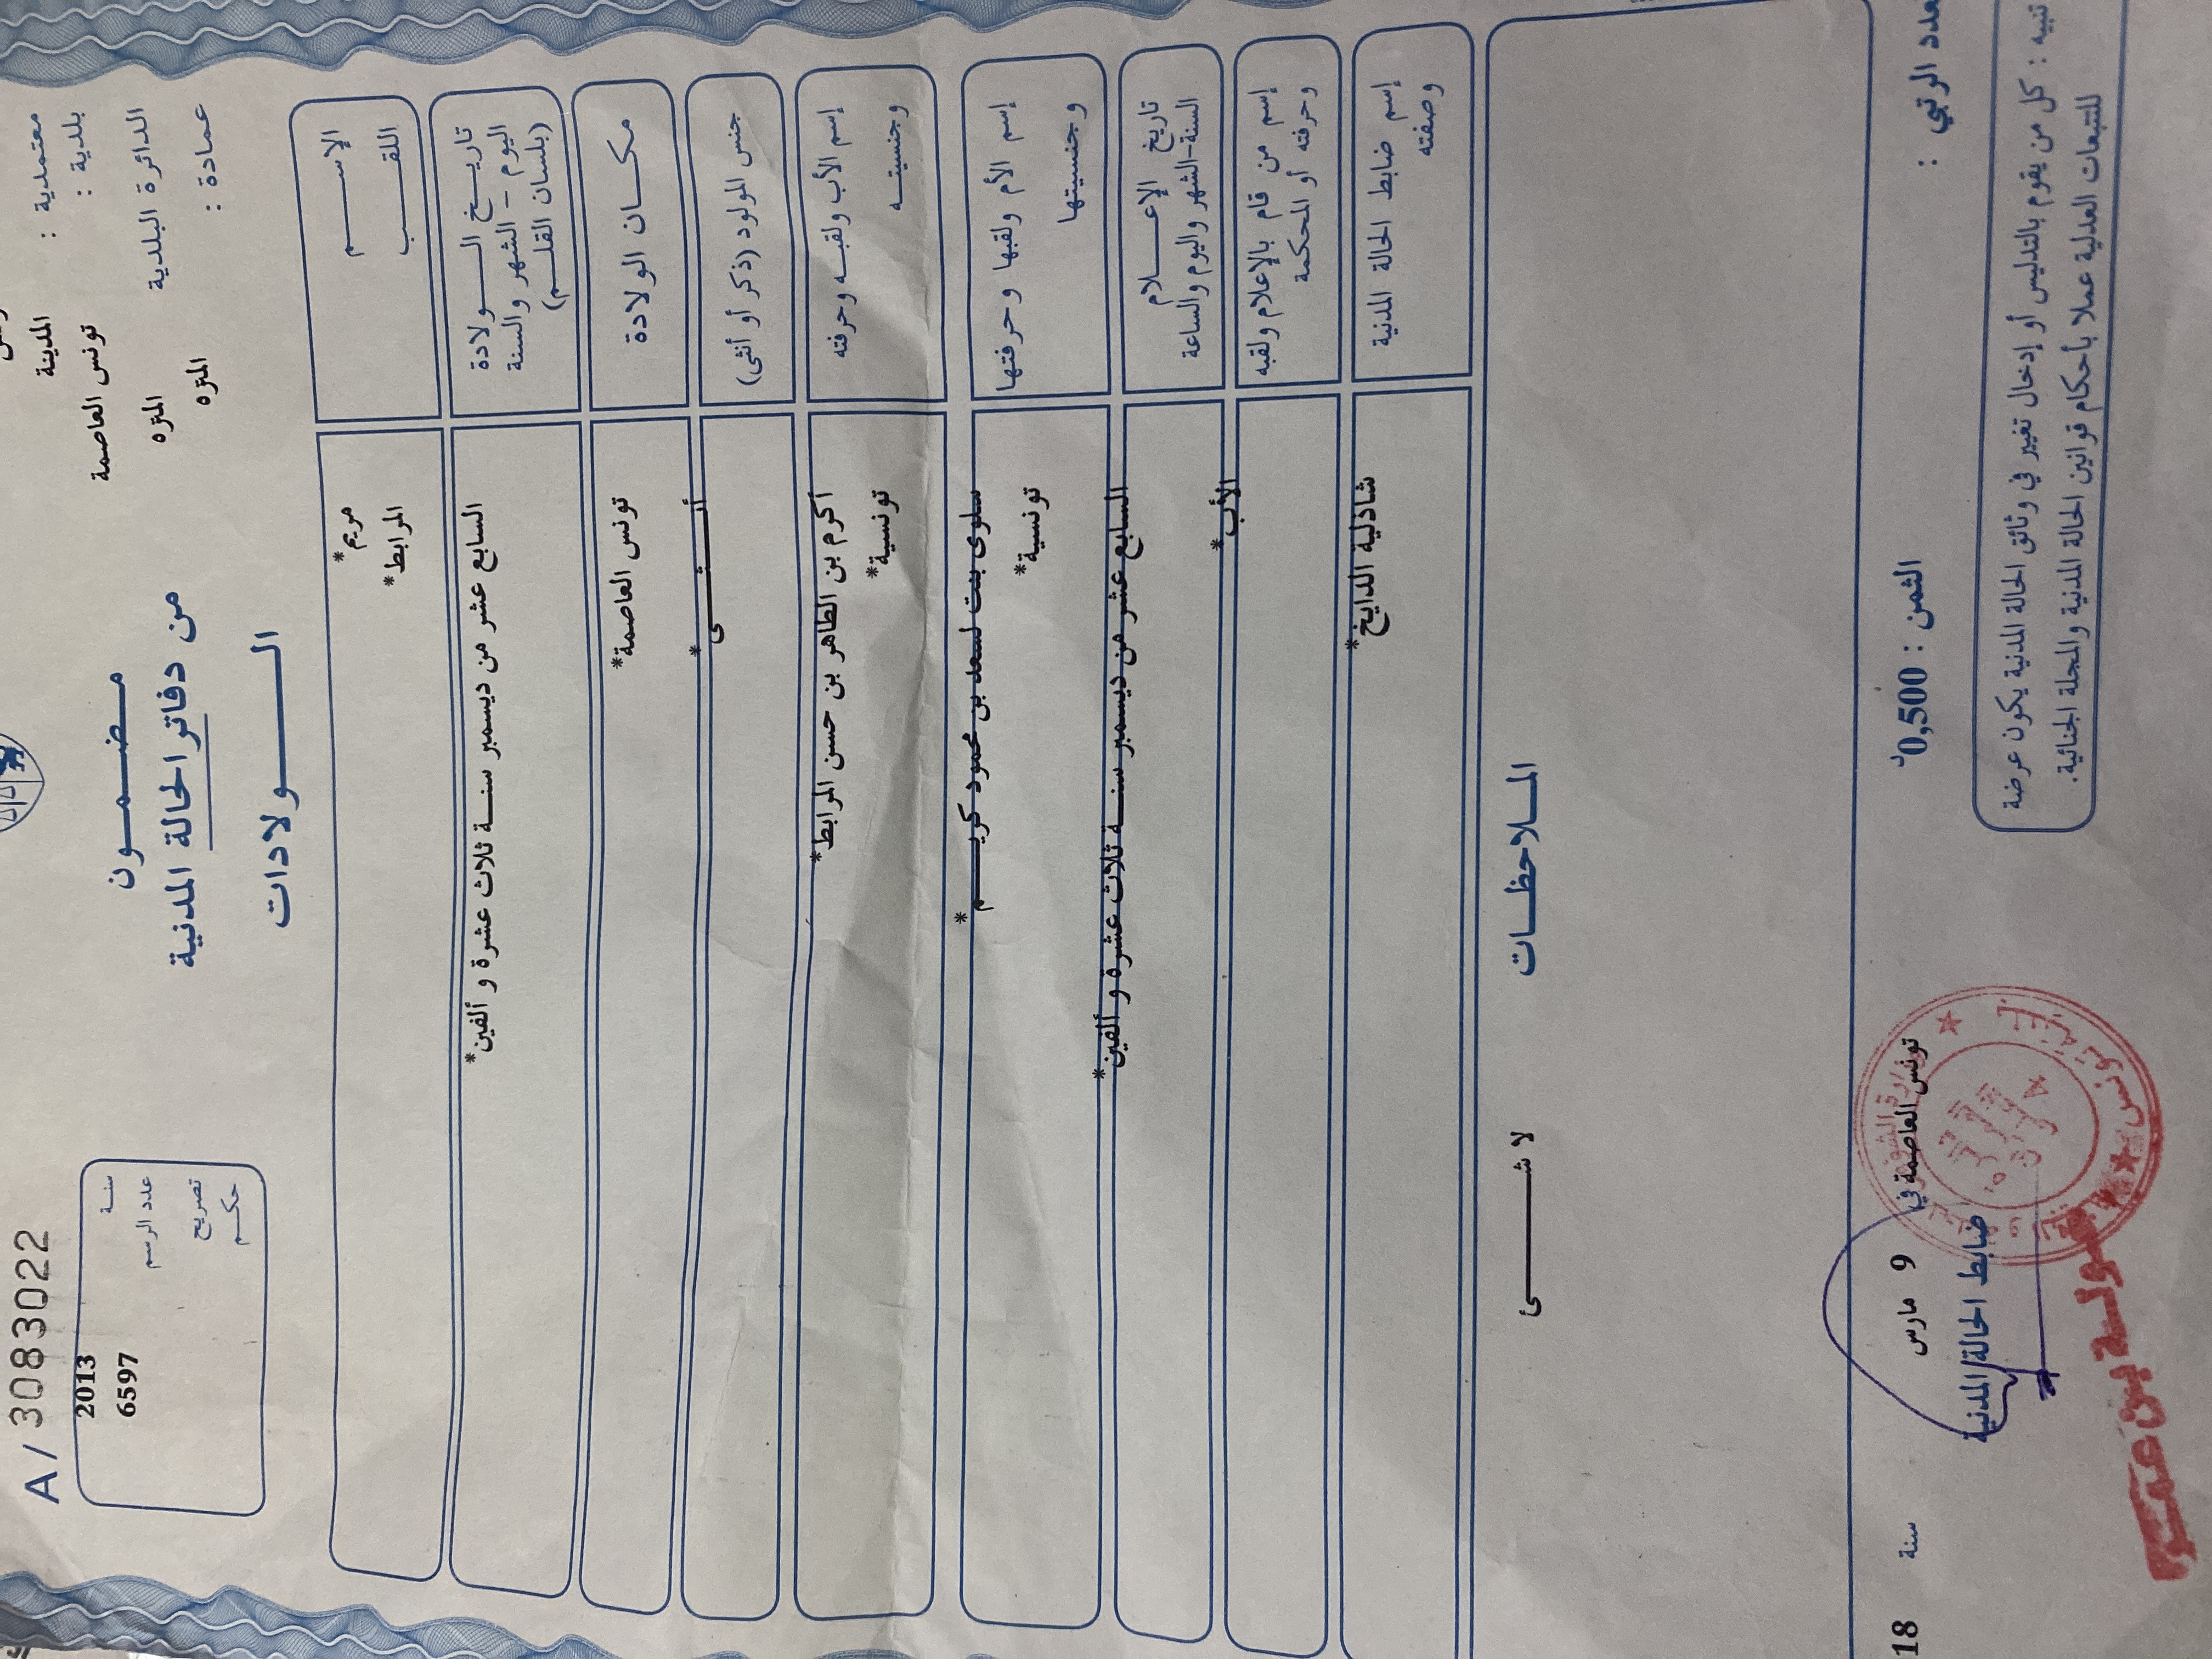 A / 3083022
معتمدية : المدينة
بلدية : تونس العاصمة
الدائرة البلدية المنزه
عمادة : المنزه
سنة 2013
عدد الرسم 6597
تصريح
حكم
مضمون
من دفاتر الحالة المدنية
الولادات
الإسم مريم*
اللقب المرابط*
تاريخ الولادة
اليوم - الشهر والسنة
(بلسان القلم)
السابع عشر من ديسمبر سنة ثلاث عشرة و ألفين*
مكان الولادة تونس العاصمة*
جنس المولود (ذكر أو أنثى) أنثى*
إسم الأب ولقبه وحرفته أكرم بن الطاهر بن حسن المرابط*
وجنسيته تونسية*
إسم الأم ولقبها وحرفتها سلوى بنت لسعد بن محمود كريم*
وجنسيتها تونسية*
تاريخ الإعلام
السنة-الشهر واليوم والساعة
السابع عشر من ديسمبر سنة ثلاث عشرة و ألفين*
إسم من قام بالإعلام ولقبه
وحرفته أو المحكمة
الأب*
إسم ضابط الحالة المدنية
وصفته
شاذلية الدايخ*
الملاحظات
لا شئ
العدد الرتبي :
الثمن : 0,500د
تونس العاصمة في 9 مارس سنة 18
ضابط الحالة المدنية
تنبيه : كل من يقوم بالتدليس أو إدخال تغيير في وثائق الحالة المدنية يكون عرضة
للتتبعات العدلية عملا بأحكام قوانين الحالة المدنية والمجلة الجنائية.